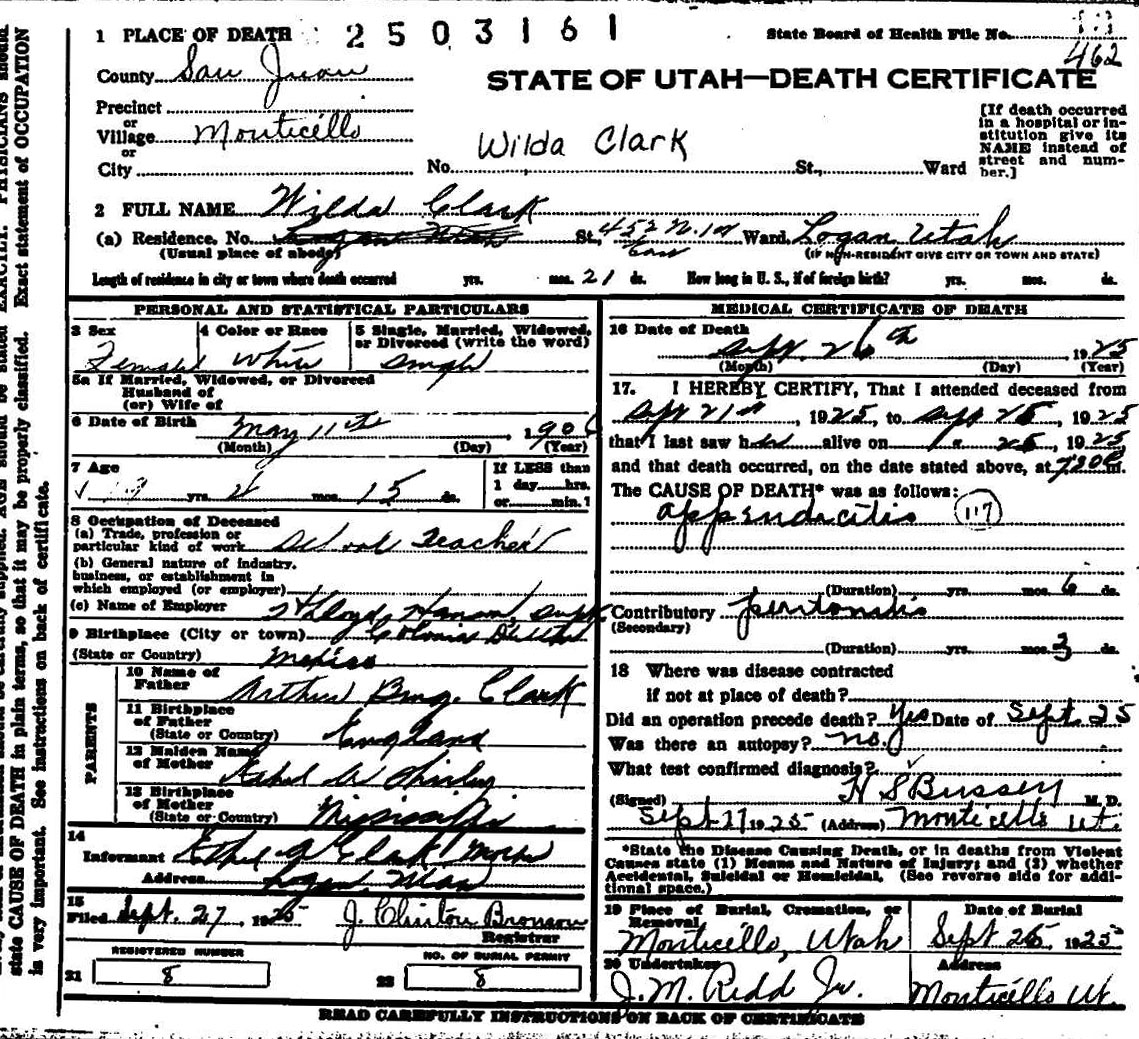 1 PLACE OF DEATH 2 5 0 3 1 6 1 State Board of Health File No.
462
County San Juan
STATE OF UTAH—DEATH CERTIFICATE
Precinct
or
Village Monticello
or
City
Wilda Clark
No. St., Ward
[If death occurred
in a hospital or in-
stitution give its
NAME instead of
street and num-
ber.]
2 FULL NAME Wilda Clark
(a) Residence, No. Logan Utah St., 452 N. 1st East Ward, Logan Utah
(Usual place of abode) (IF NON-RESIDENT GIVE CITY OR TOWN AND STATE)
Length of residence in city or town where death occurred yrs. mos. 21 ds. How long in U. S., if of foreign birth? yrs. mos. ds.
PERSONAL AND STATISTICAL PARTICULARS
3 Sex 4 Color or Race 5 Single, Married, Widowed,
or Divorced (write the word)
Female White Single
5a If Married, Widowed, or Divorced
Husband of
(or) Wife of
6 Date of Birth May 11th, 1906
(Month) (Day) (Year)
7 Age If LESS than
1 day hrs.
or min.?
yrs. 4 mos. 15 ds.
8 Occupation of Deceased
(a) Trade, profession or
particular kind of work School Teacher
(b) General nature of industry,
business, or establishment in
which employed (or employer)
(c) Name of Employer Lloyd Hansen, Supt
9 Birthplace (City or town) Colonia
(State or Country) Mexico
PARENTS
10 Name of
Father Arthur Benj. Clark
11 Birthplace
of Father
(State or Country) England
12 Maiden Name
of Mother
13 Birthplace
of Mother
(State or Country) Mississippi
14
Informant Ethel Clark
Address Logan, Utah
15
Filed Sept. 27 1925 J. Clinton Bronson
Registrar
REGISTERED NUMBER NO. OF BURIAL PERMIT
21 8 22 8
MEDICAL CERTIFICATE OF DEATH
16 Date of Death
Sept. 26th 1925
(Month) (Day) (Year)
17. I HEREBY CERTIFY, That I attended deceased from
Sept 21st, 1925, to Sept 26, 1925
that I last saw her alive on 26, 1925
and that death occurred, on the date stated above, at 720P m.
The CAUSE OF DEATH* was as follows:
Appendicitis 117
(Duration) yrs. mos. 6 ds.
Contributory peritonitis
(Secondary)
(Duration) yrs. mos. 3 ds.
18 Where was disease contracted
if not at place of death?
Did an operation precede death? Yes Date of Sept. 25
Was there an autopsy? no.
What test confirmed diagnosis?
(Signed) H S Bussey M. D.
Sept 27 1925 (Address) Monticello Ut.
*State the Disease Causing Death, or in deaths from Violent
Causes state (1) Means and Nature of Injury; and (2) whether
Accidental, Suicidal or Homicidal. (See reverse side for addi-
tional space.)
19 Place of Burial, Cremation, or
Removal Date of Burial
Monticello, Utah Sept 26 1925
20 Undertaker Address
J. M. Redd Jr. Monticello Ut.
READ CAREFULLY INSTRUCTIONS ON BACK OF CERTIFICATE
EXACTLY. PHYSICIANS should
state CAUSE OF DEATH in plain terms, so that it may be properly classified. Exact statement of OCCUPATION
is very important. See instructions on back of certificate.